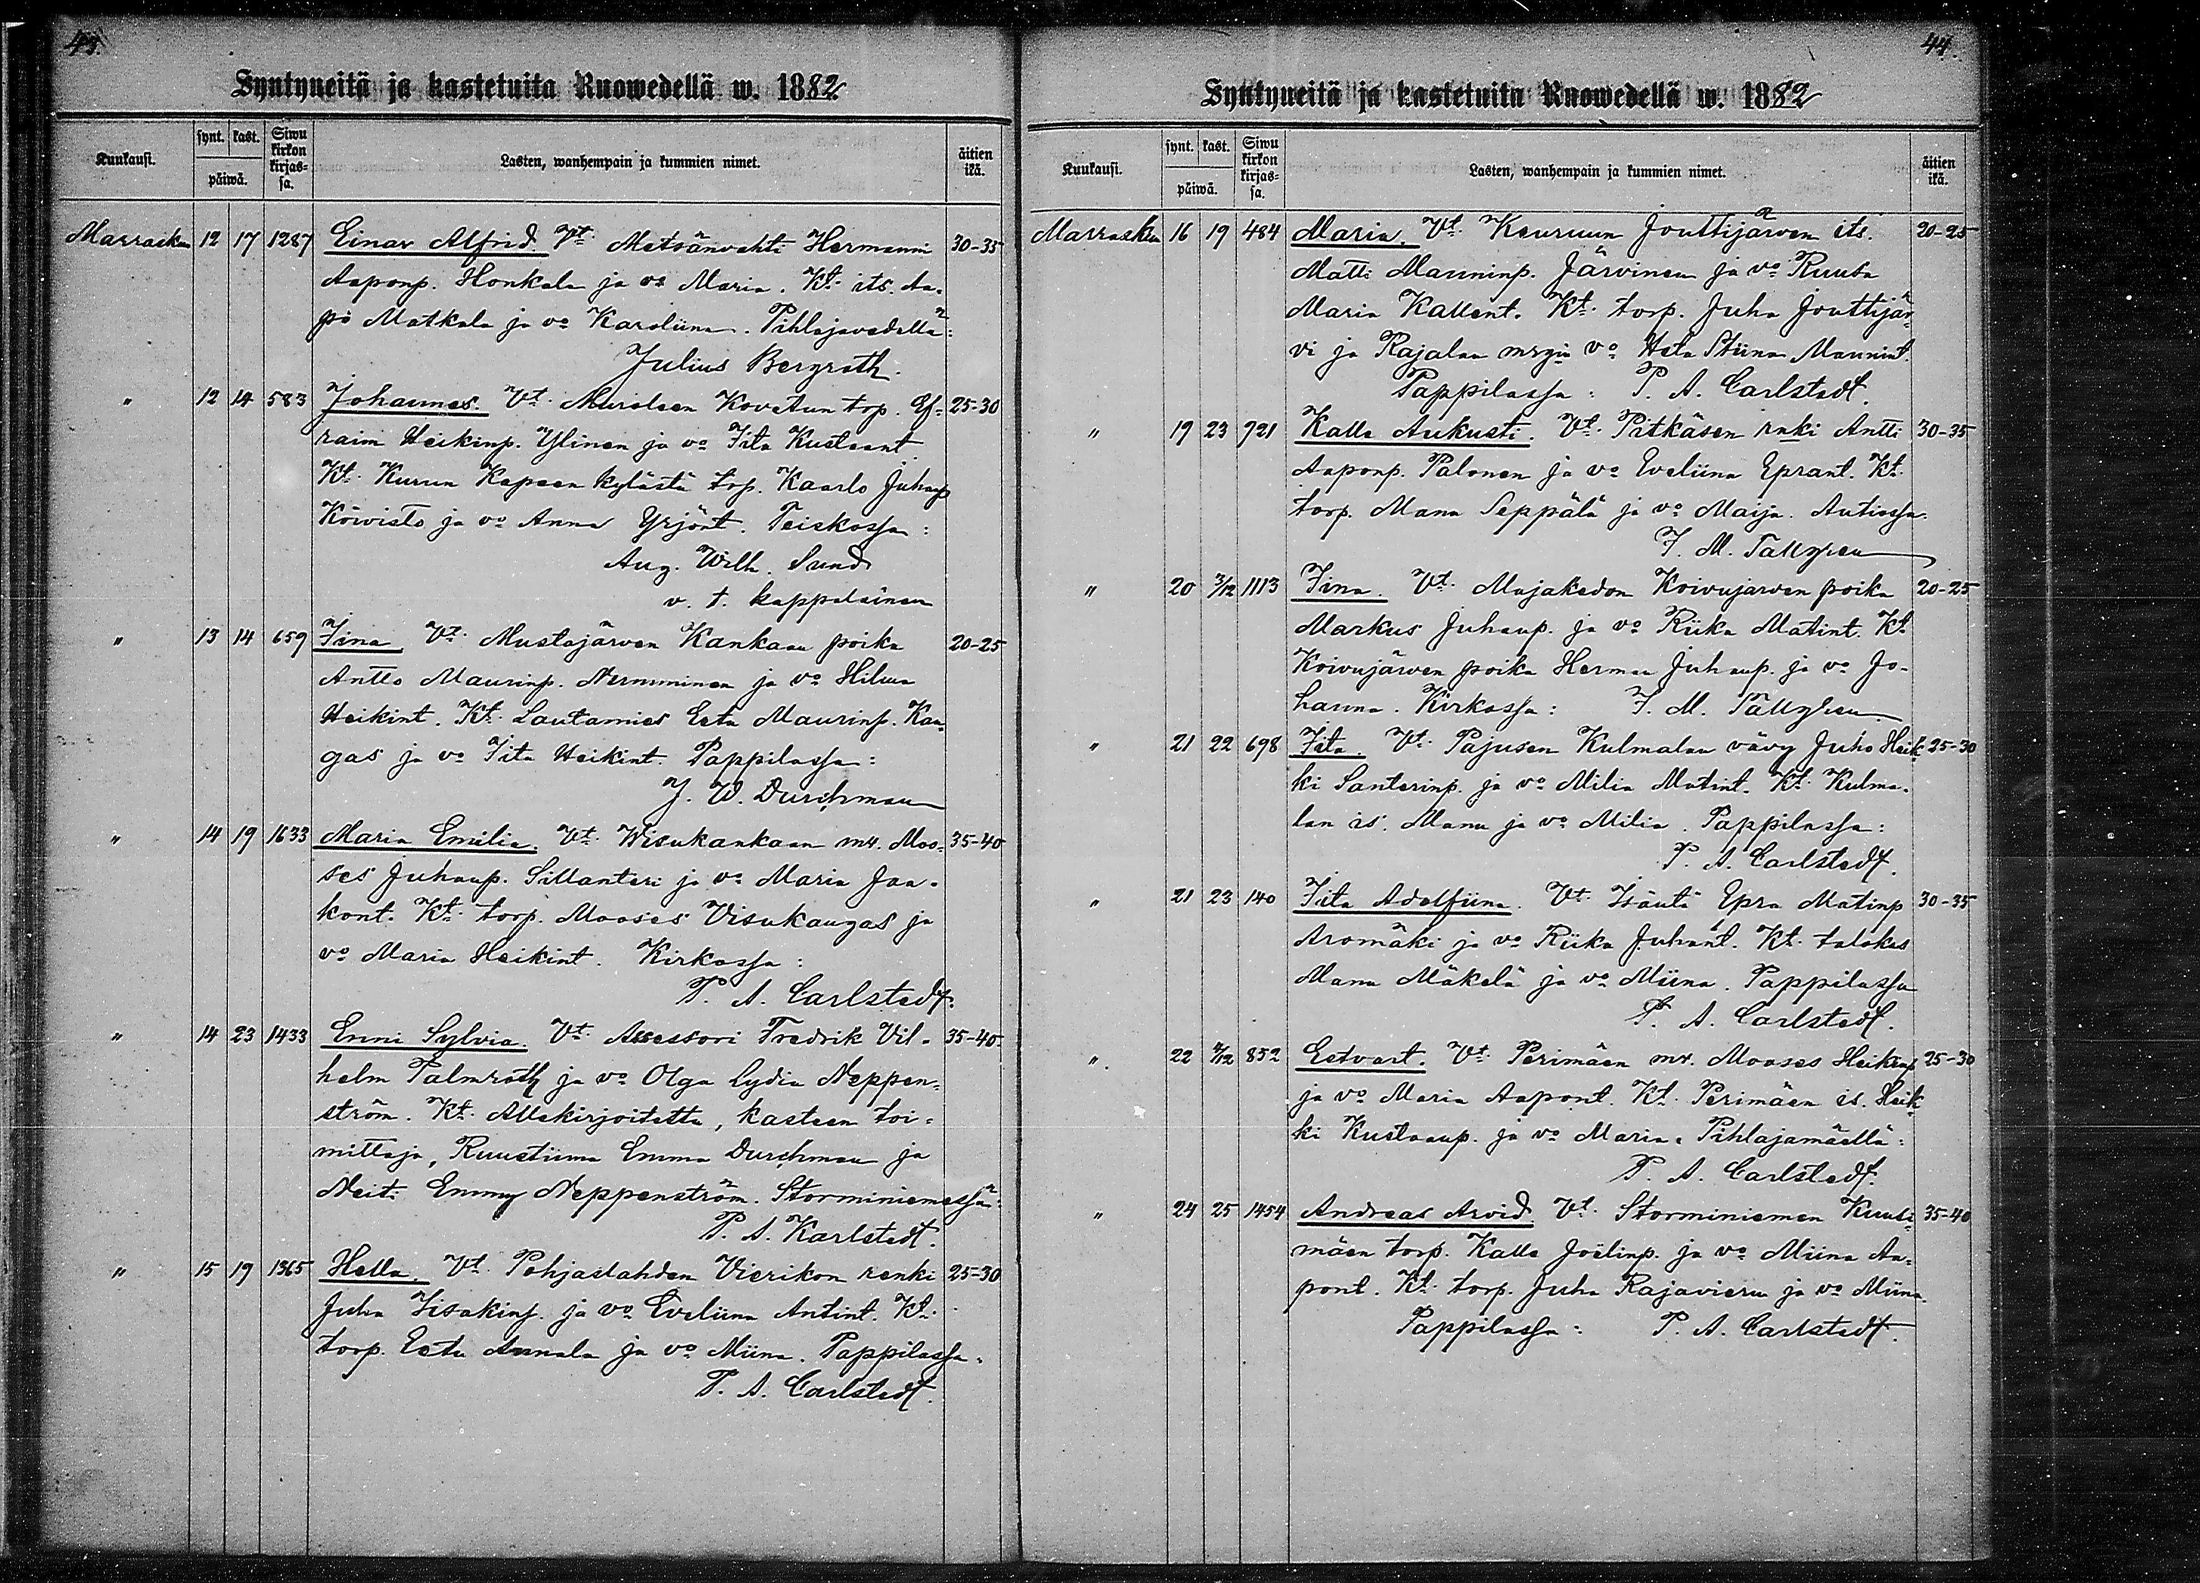 43.
Syntyneitä ja kastetuita Ruowedellä w. 1882
Kuukausi. synt. kast. päiwä. Siwu kirkon kirjas-sa. Lasten, wanhempain ja kummien nimet. äitien ikä.
Marrasku 12 17 1287 Einar Alfrid. Vt. Metsänvahti Hermanni 30-35
Aaponp. Honkala ja vo Maria. Kt. its. Aa-
po Matkala ja vo Karoliina. Pihlajavedellä:
Julius Bergroth.
" 12 14 583 Johannes. Vt. Muroleen Kovetun top. Ef- 25-30
raim Heikinp. Ylinen ja vo Iita Kustaant.
Kt. Kurun Kapeen kylästä top. Kaarlo Juhanp
Koivisto ja vo Anna Yrjönt. Teiskossa:
Aug. Wilh. Sund
v. t. kappalainen
" 13 14 659 Iina Vt. Mustajärven Kankaan poika 20-25
Antto Maurinp. Nurmminen ja vo Hilma
Heikint. Kt. Lautamies Eetu Maurinp. Kan-
gas ja vo Iita Heikint. Pappilassa:
J. W. Durchman
" 14 19 1633 Maria Emilia. Vt. Wisukankaan mr. Moo- 35-40
ses Juhanp. Sillanteri ja vo Maria Jaa-
kont. Kt. torp. Mooses Visukangas ja
vo Maria Heikint. Kirkossa:
P. A. Carlstedt.
" 14 23 1433 Enni Sylvia. Vt. Assessori Fredrik Vil- 35-40
helm Palmroth ja vo Olga Lydia Neppen-
ström. Kt. Allekirjoitettu, kasteen toi-
mittaja, Ruustinna Emma Durchman ja
Neiti Emmy Neppenström. Storminiemessä:
P. A. Karlstedt.
" 15 19 1365 Hella. Vt. Pohjaslahden Vierikon renki 25-30
Juha Iisakinp. ja vo Eveliina Antint. Kt.
torp. Eetu Annala ja vo Miina. Pappilassa.
P. A. Carlstedt.
44.
Syntyneitä ja kastetuita Ruowedellä w. 1882
Kuukausi. synt. kast. päiwä. Siwu kirkon kirjas-sa. Lasten, wanhempain ja kummien nimet. äitien ikä.
Marrasku 16 19 484 Maria. Vt. Keuruun Jouttijärven its. 20-25
Matti Manninp. Järvinen ja vo Ruusa
Maria Kallent. Kt. torp. Juha Jouttijär-
vi ja Rajalan vo Heta Stiina Mannint.
Pappilassa: P. A. Carlstedt.
" 19 23 721 Kalle Aukusti. Vt. Pitkäsen rnki Antti 30-35
Aaponp. Palonen ja vo Eveliina Eprant. Kt.
torp. Manu Seppälä ja vo Maija. Autiossa.
F. M. Tallgren
" 20 3/12 1113 Iina. Vt. Majakedon Koivujarven poika 20-25
Markus Juhanp. ja vo Riika Matint. Kt.
Koivujärven poika Herman Juhanp. ja vo Jo-
hanna. Kirkossa: F. M. Tallgren
" 21 22 698 Iita. Vt. Pajusen Kulmalan vävy Juho Heik- 25-30
ki Santerinp. ja vo Milia Matint. Kt. Kulma-
lan is. Manu ja vo Milia. Pappilassa:
P. A. Carlstedt.
" 21 23 140 Iita Adolfiina. Vt. Isäntä Epra Matinp 30-35
Aromäki ja vo Riika Juhant. Kt. talokas
Manu Mäkelä ja vo Miina. Pappilassa
P. A. Carlstedt.
" 22 2/12 852 Eetvart. Vt. Perimäen mr. Mooses Heikinp 25-30
ja vo Maria Aapont. Kt. Perimäen is. Heik-
ki Kustaanp. ja vo Maria. Pihlajamäellä:
P. A. Carlstedt.
" 24 25 1454 Andreas Arvid Vt. Storminiemen Kuusi- 35-40
mäen torp. Kalle Joelinp. ja vo Miina Aa-
pont. Kt. torp. Juha Rajavieru ja vo Miina.
Pappilassa: P. A. Carlstedt.